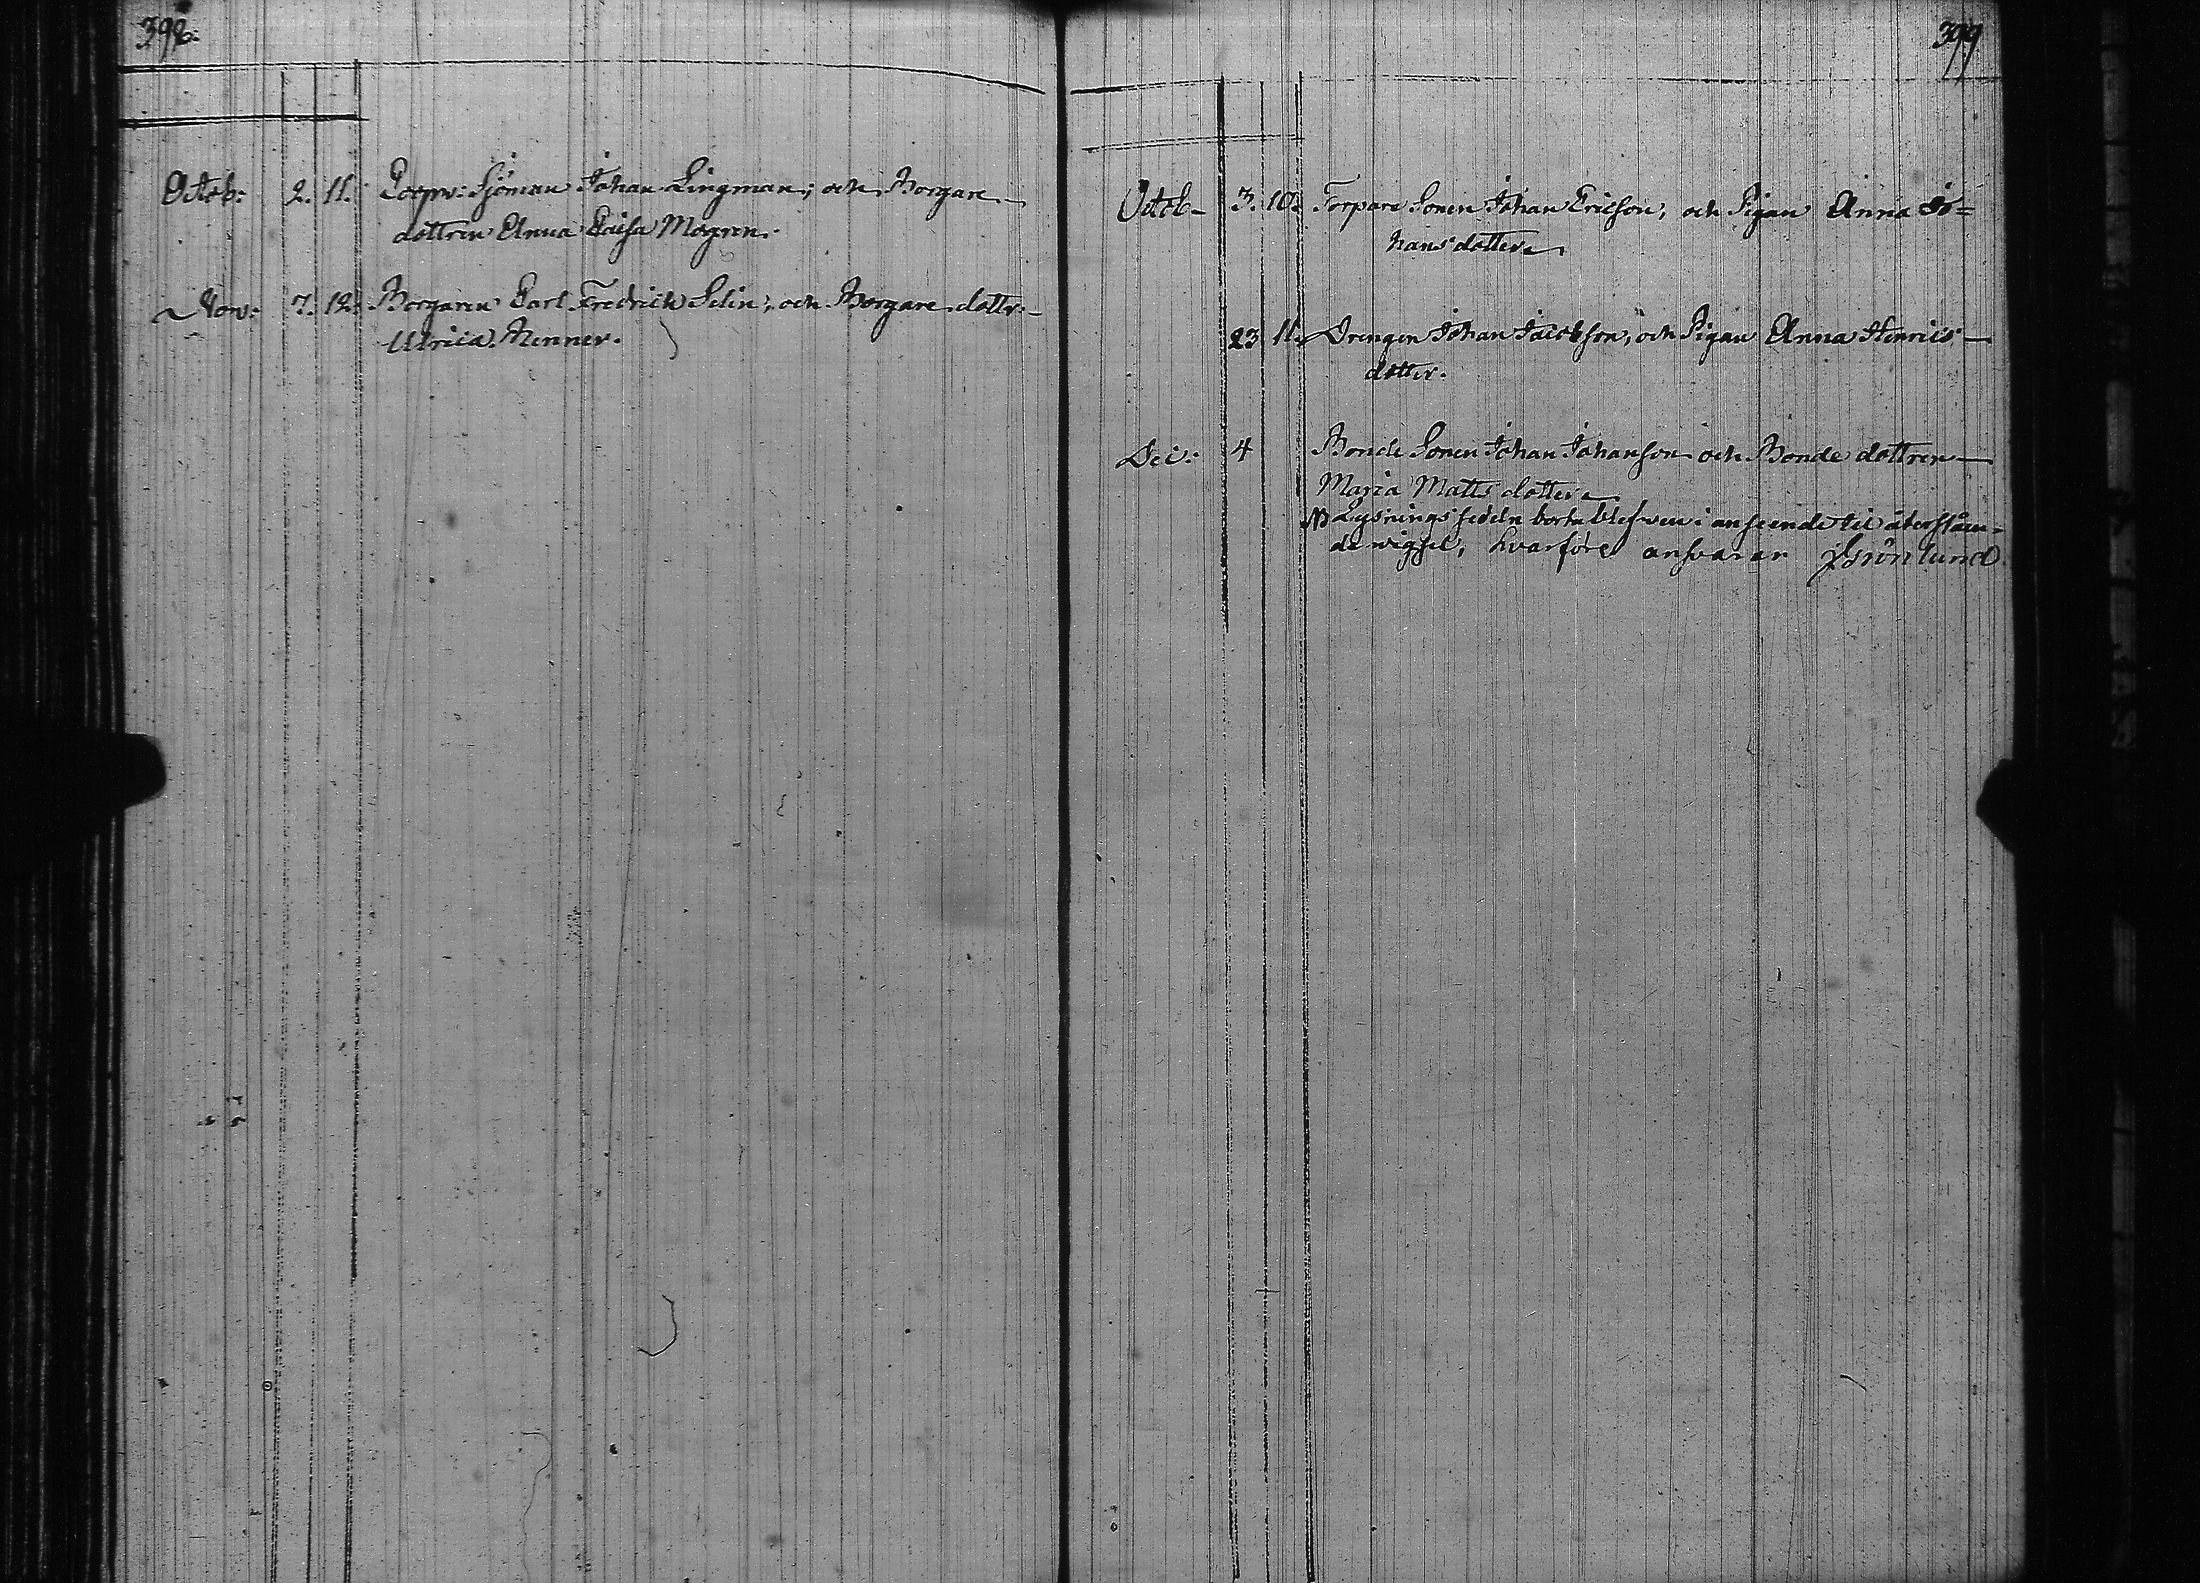 398.
Octob: 2. 11. Coopv: Sjöman Johan Lingman; och Borgare
dottren Anna Caisa Mogren.
Nov: 7. 12. Borgaren Carl Fredrich Selin; och Borgare dottr:
Ulrica Renner.
399
Octob 3. 10. Torpare Sonen Johan Ericson; och Pigan Anna Jo=
hansdotter
23 11. Drengen Johan Jacobson, och Pigan Anna Henrics
dotter.
Dec: 4 Bonde Sonen Johan Johanson och Bonde dottren
Maria Matts dotter
NB Lysnings sedeln borta blefven i anseende til återståen=
de wigsel, hvarföre ansvarar J Grönlund.